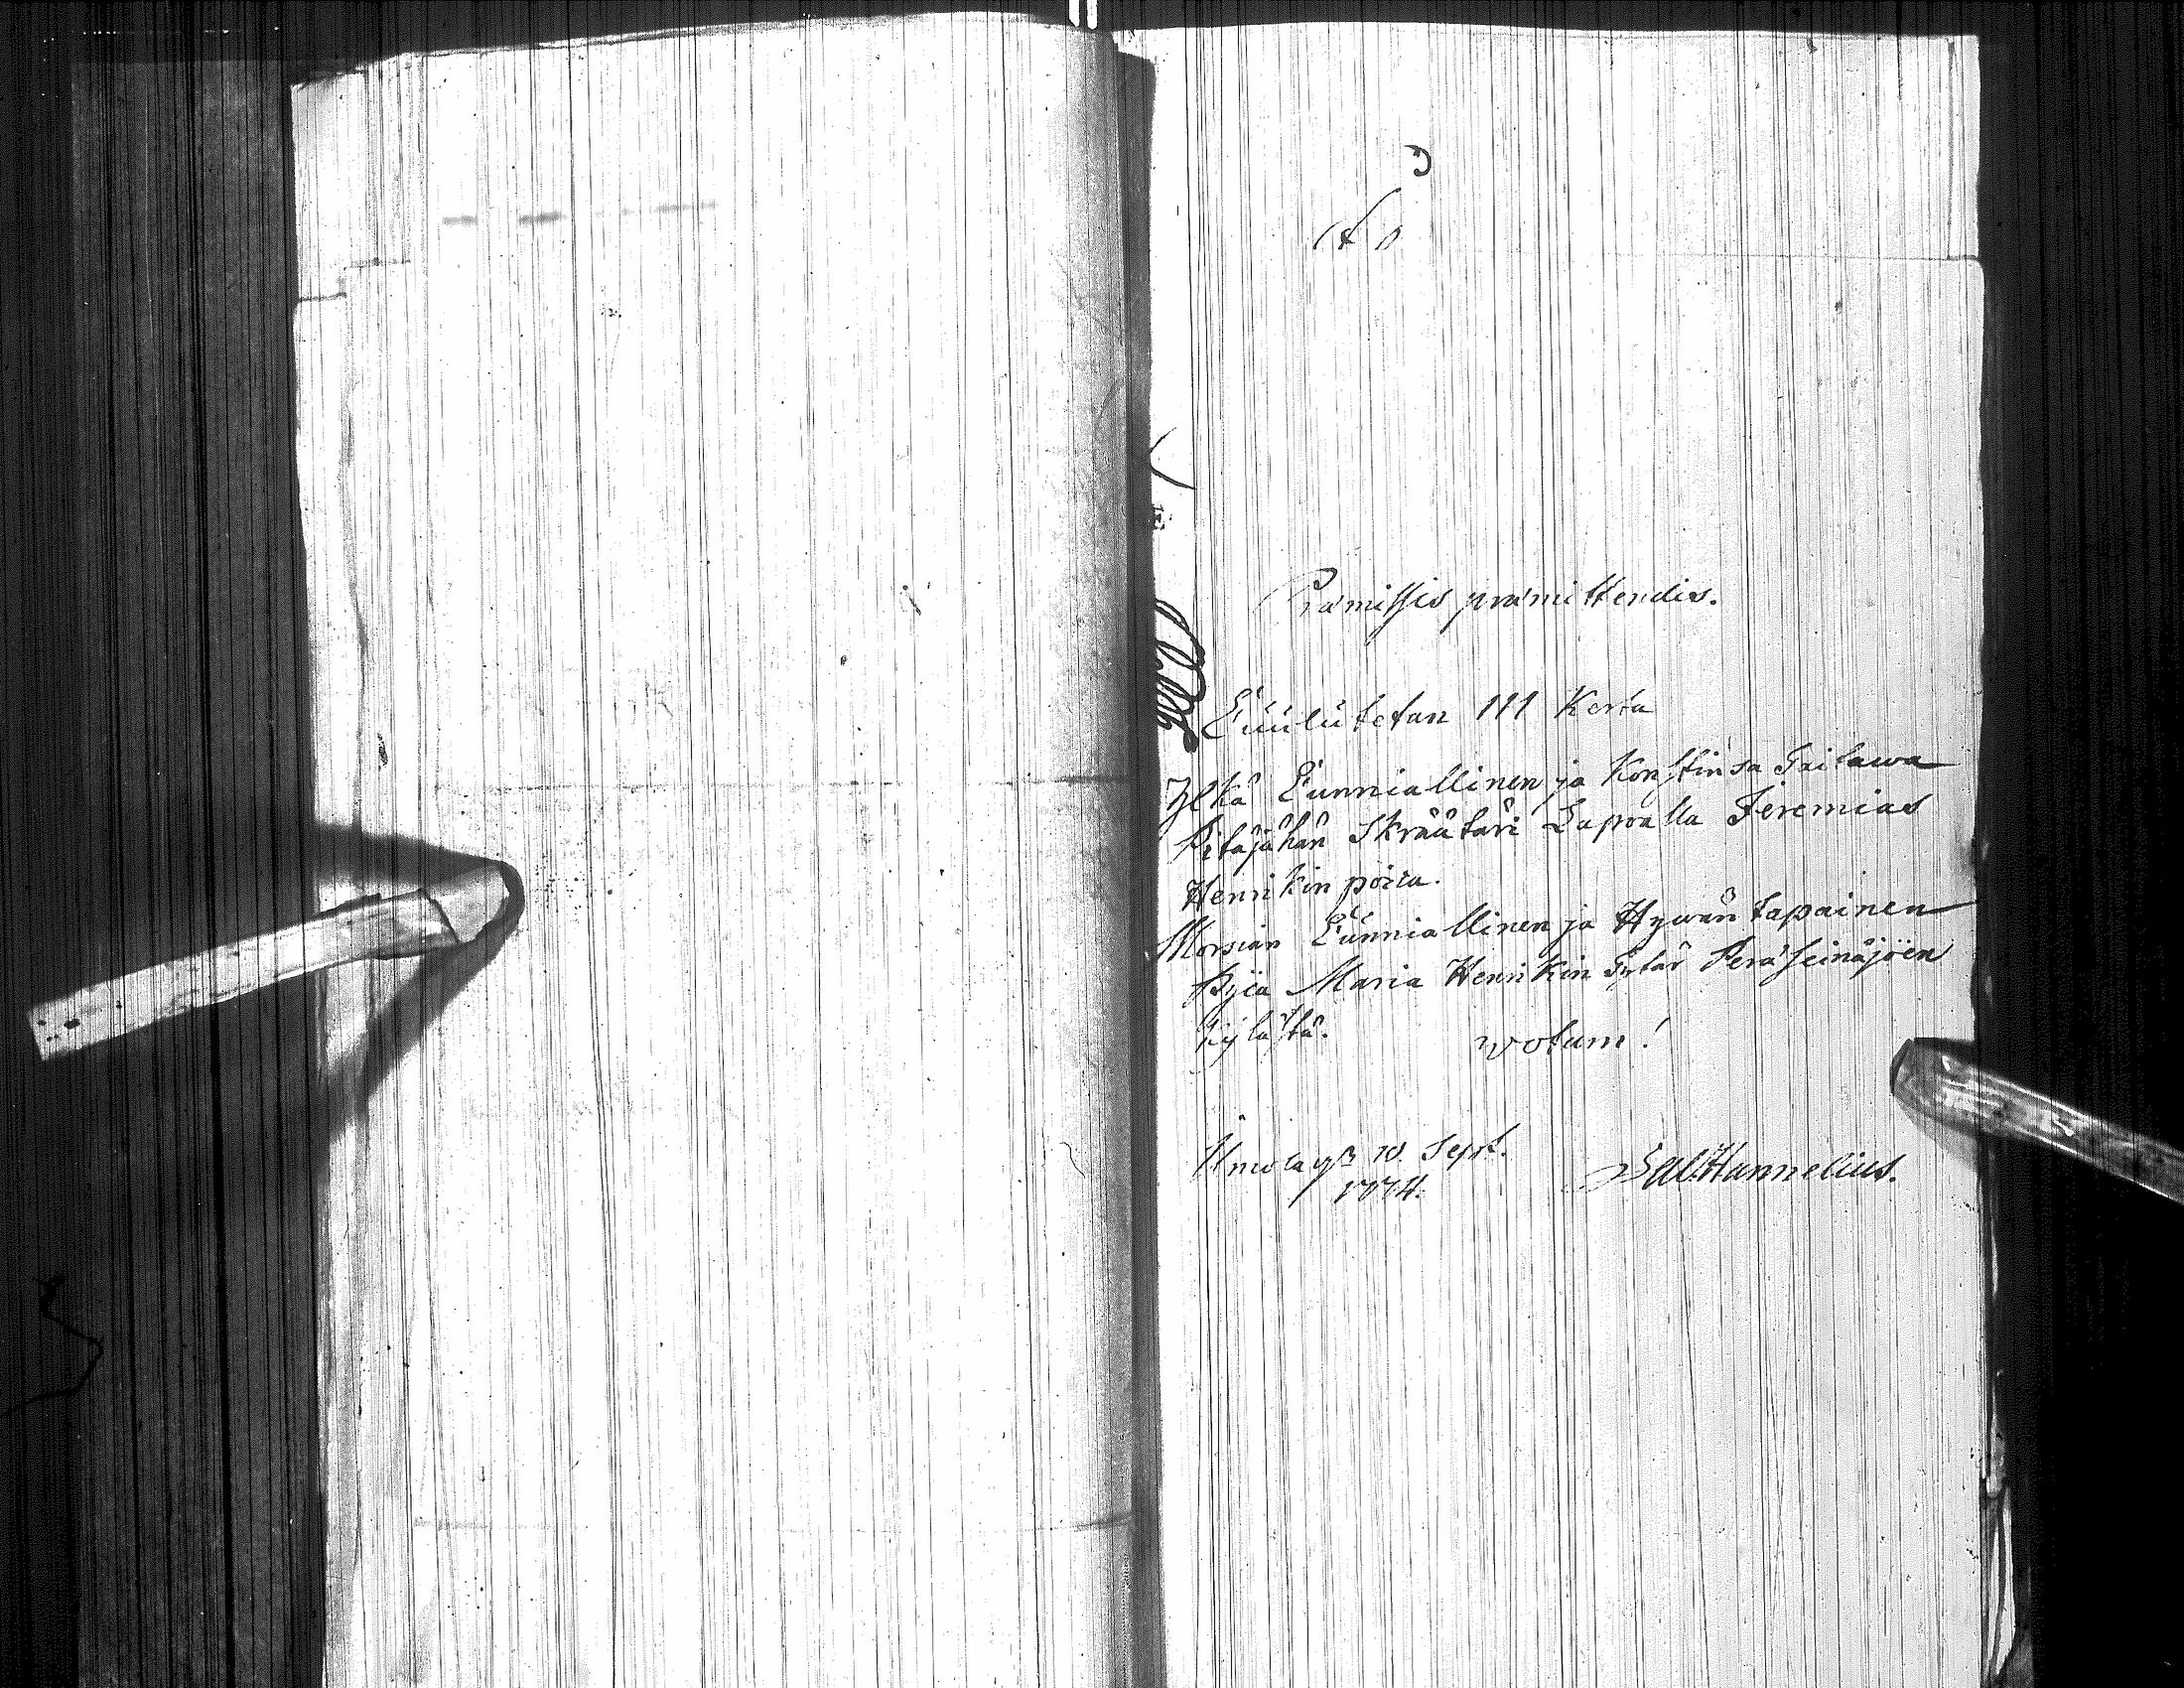 Præmissis præmittendis.
Cuulutetan III Kerta
Ylkä Cunniallinen ja Konstinsa Taitawa
Pitäjähän Skräätäri Lapoalla Jeremias
Henrikin poica.
Morsian Cunniallinen ja Hywän tapainen
Pijca Maria Henrikin Tytär Peräseinäjoen
kylästä. Votum!
10. Sept.
Hannelius.